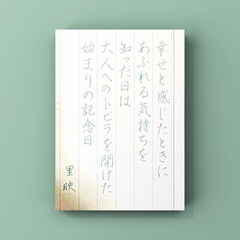 幸せと感じたときに
あふれる気持ちを
知った日は
大人へのトビラを開けた
始まりの記念日
里映